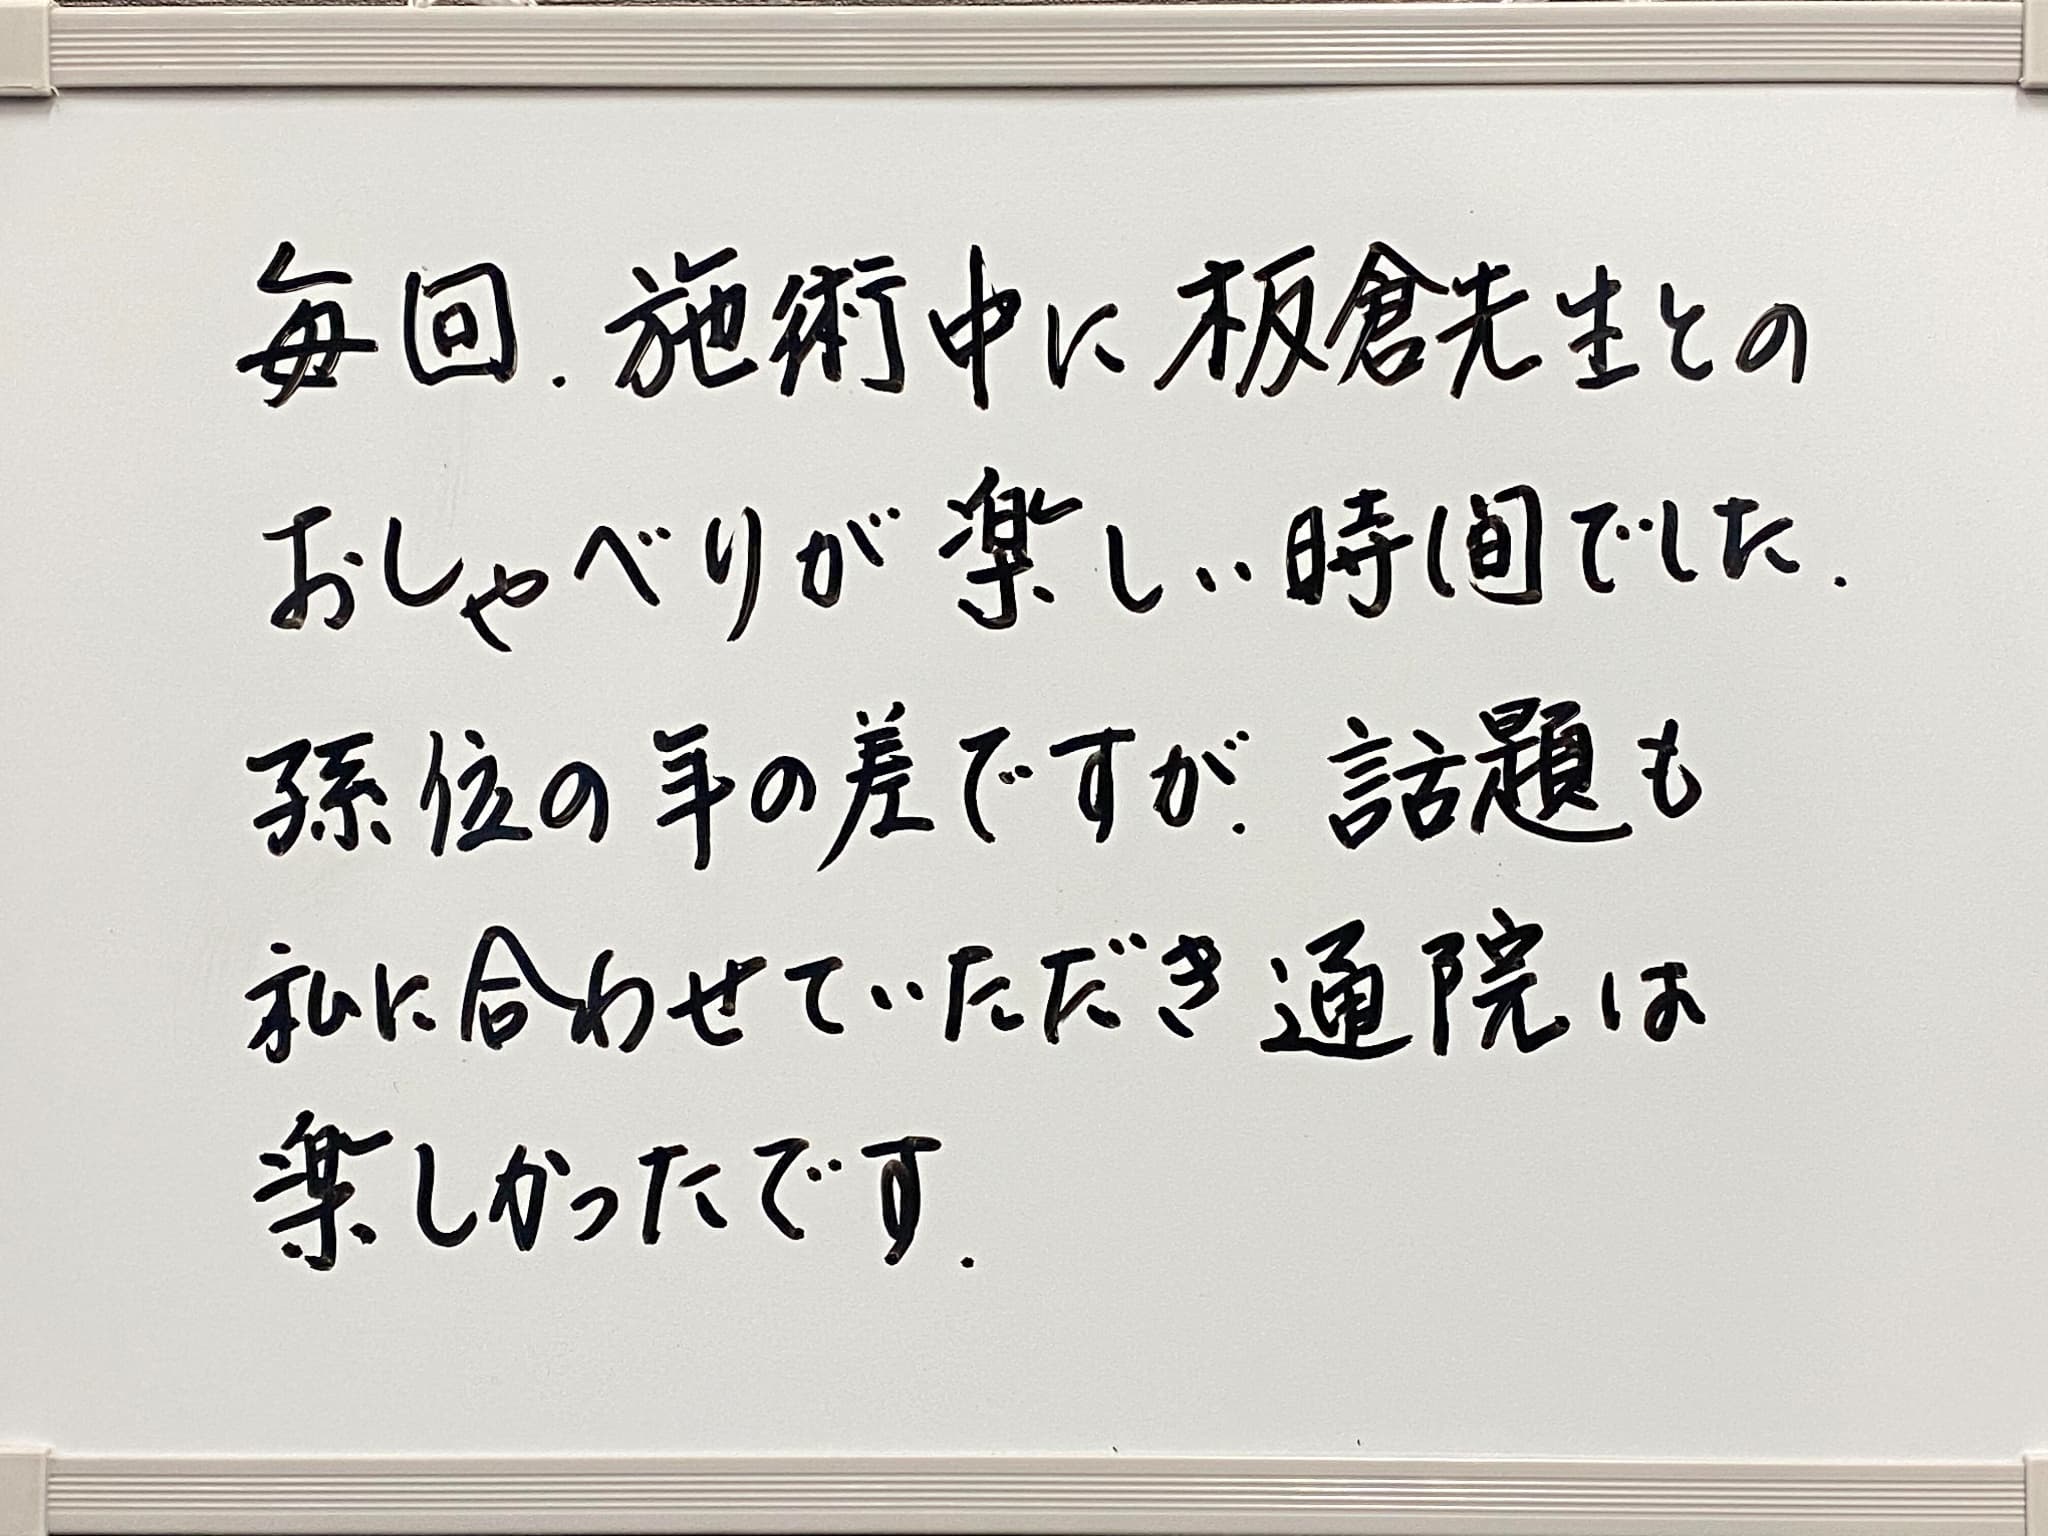 毎回.施術中に板倉先生との
おしゃべりが楽しい時間でした.
孫位の年の差ですが.話題も
私に合わせていただき通院は
楽しかったです.